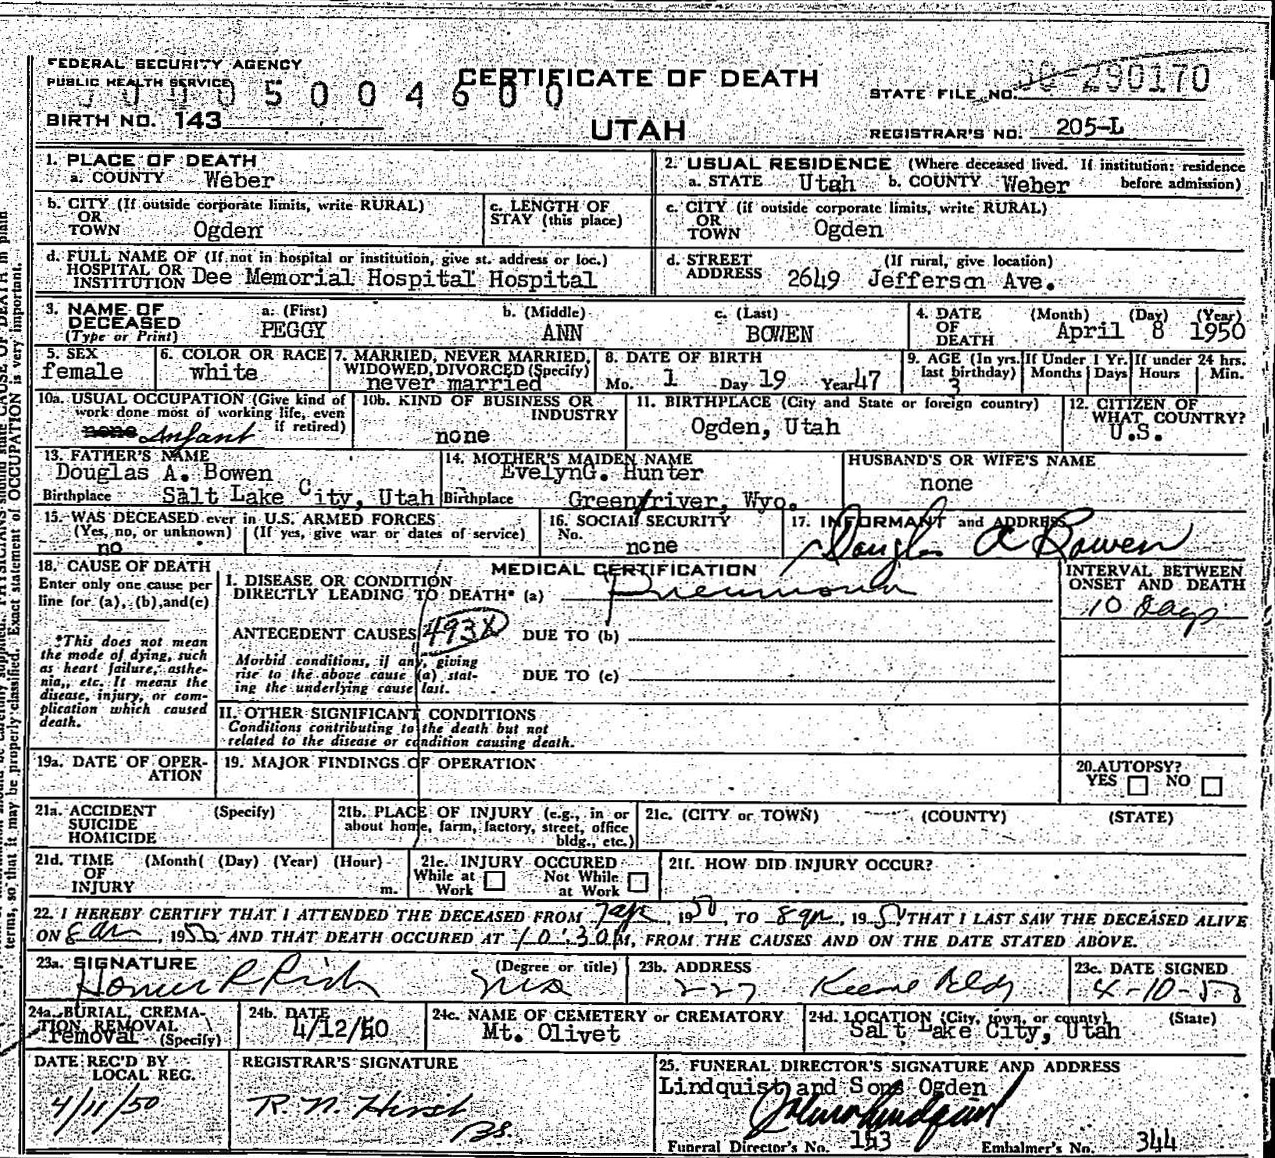 FEDERAL SECURITY AGENCY
PUBLIC HEALTH SERVICE
CERTIFICATE OF DEATH
STATE FILE NO. 290170
5004600
BIRTH NO. 143
UTAH
REGISTRAR'S NO. 205-L
1. PLACE OF DEATH
a. COUNTY Weber
2. USUAL RESIDENCE (Where deceased lived. If institution: residence before admission)
a. STATE Utah b. COUNTY Weber
b. CITY (If outside corporate limits, write RURAL)
OR
TOWN Ogden
c. LENGTH OF
STAY (this place)
c. CITY (if outside corporate limits, write RURAL)
OR
TOWN Ogden
d. FULL NAME OF (If not in hospital or institution, give st. address or loc.)
HOSPITAL OR
INSTITUTION Dee Memorial Hospital Hospital
d. STREET (If rural, give location)
ADDRESS 2649 Jefferson Ave.
3. NAME OF
DECEASED
(Type or Print)
a. (First) b. (Middle) c. (Last)
PEGGY ANN BOWEN
4. DATE
OF
DEATH
(Month) (Day) (Year)
April 8 1950
5. SEX
female
6. COLOR OR RACE
white
7. MARRIED, NEVER MARRIED,
WIDOWED, DIVORCED (Specify)
never married
8. DATE OF BIRTH
Mo. 1 Day 19 Year 47
9. AGE (In yrs.
last birthday)
3
If Under 1 Yr.
Months Days
If under 24 hrs.
Hours Min.
10a. USUAL OCCUPATION (Give kind of
work done most of working life, even
if retired)
none Infant
10b. KIND OF BUSINESS OR
INDUSTRY
none
11. BIRTHPLACE (City and State or foreign country)
Ogden, Utah
12. CITIZEN OF
WHAT COUNTRY?
U.S.
13. FATHER'S NAME
Douglas A. Bowen
Birthplace Salt Lake City, Utah
14. MOTHER'S MAIDEN NAME
EvelynG. Hunter
Birthplace Green/river, Wyo.
HUSBAND'S OR WIFE'S NAME
none
15. WAS DECEASED ever in U.S. ARMED FORCES
(Yes, no, or unknown) (If yes, give war or dates of service)
no
16. SOCIAL SECURITY
No.
none
17. INFORMANT and ADDRESS
Douglas A Bowen
18. CAUSE OF DEATH
Enter only one cause per
line for (a), (b), and (c)
*This does not mean
the mode of dying, such
as heart failure, asthe-
nia, etc. It means the
disease, injury, or com-
plication which caused
death.
MEDICAL CERTIFICATION
I. DISEASE OR CONDITION
DIRECTLY LEADING TO DEATH* (a) Pneumonia
ANTECEDENT CAUSES 493X DUE TO (b)
Morbid conditions, if any, giving
rise to the above cause (a) stat-
ing the underlying cause last.
DUE TO (c)
II. OTHER SIGNIFICANT CONDITIONS
Conditions contributing to the death but not
related to the disease or condition causing death.
INTERVAL BETWEEN
ONSET AND DEATH
10 Days
19a. DATE OF OPER-
ATION
19. MAJOR FINDINGS OF OPERATION
20. AUTOPSY?
YES NO
21a. ACCIDENT (Specify)
SUICIDE
HOMICIDE
21b. PLACE OF INJURY (e.g., in or
about home, farm, factory, street, office
bldg., etc.)
21c. (CITY or TOWN) (COUNTY) (STATE)
21d. TIME (Month( (Day) (Year) (Hour)
OF
INJURY m.
21e. INJURY OCCURED
While at Work Not While at Work
21f. HOW DID INJURY OCCUR?
22. I HEREBY CERTIFY THAT I ATTENDED THE DECEASED FROM 7 apr, 1950 TO 8 apr, 1950 THAT I LAST SAW THE DECEASED ALIVE
ON 8 apr, 1950, AND THAT DEATH OCCURED AT 10:30 P M, FROM THE CAUSES AND ON THE DATE STATED ABOVE.
23a. SIGNATURE (Degree or title)
Homer R Rich MD
23b. ADDRESS
227
23c. DATE SIGNED
4-10-50
24a. BURIAL, CREMA-
TION, REMOVAL
removal (Specify)
24b. DATE
4/12/50
24c. NAME OF CEMETERY or CREMATORY
Mt. Olivet
24d. LOCATION (City, town, or county) (State)
Salt Lake City, Utah
DATE REC'D BY
LOCAL REG.
4/11/50
REGISTRAR'S SIGNATURE
25. FUNERAL DIRECTOR'S SIGNATURE AND ADDRESS
Lindquist and Sons Ogden
Funeral Director's No. 153 Embalmer's No. 344
terms, so that it may be properly classified. Exact statement of OCCUPATION is very important.